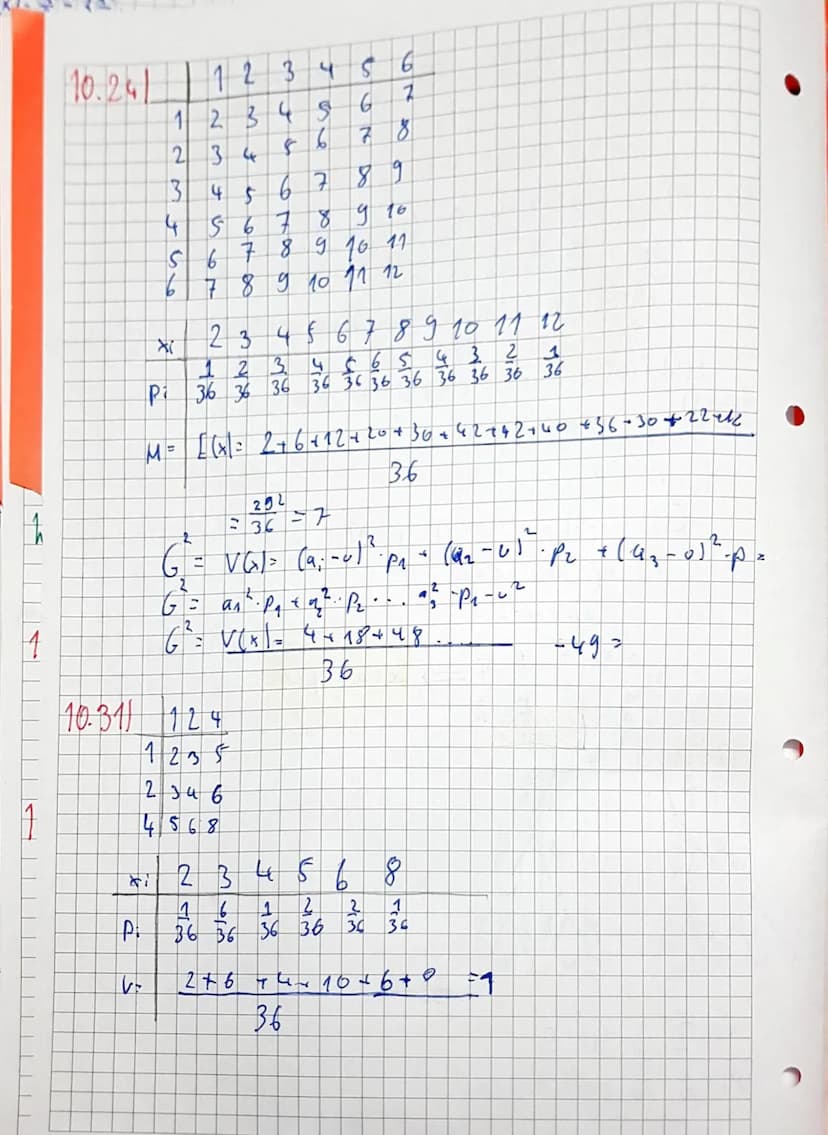 10.24) 1 2 3 4 5 6
1 2 3 4 5 6 7
2 3 4 5 6 7 8
3 4 5 6 7 8 9
4 5 6 7 8 9 10
5 6 7 8 9 10 11
6 7 8 9 10 11 12
xi 2 3 4 5 6 7 8 9 10 11 12
pi 1/36 2/36 3/36 4/36 5/36 6/36 5/36 4/36 3/36 2/36 1/36
M = E(x) = 2+6+12+20+30+42+42+40+36+30+22+12
36
= 292/36 = 7
G² = V(x) = (a₁-υ)²·p₁ + (a₂-υ)²·p₂ + (a₃-υ)²·p =
G² = a₁²·p₁ + a₂²·p₂ ... a₃²·p₁-υ²
G² = V(x) = 4+18+48 ........ -49 =
36
10.31) 1 2 4
1 2 3 5
2 3 4 6
4 5 6 8
xi 2 3 4 5 6 8
pi 1/36 6/36 1/36 2/36 2/36 1/36
υ= 2+6+4+10+6+ =1
36
1
1